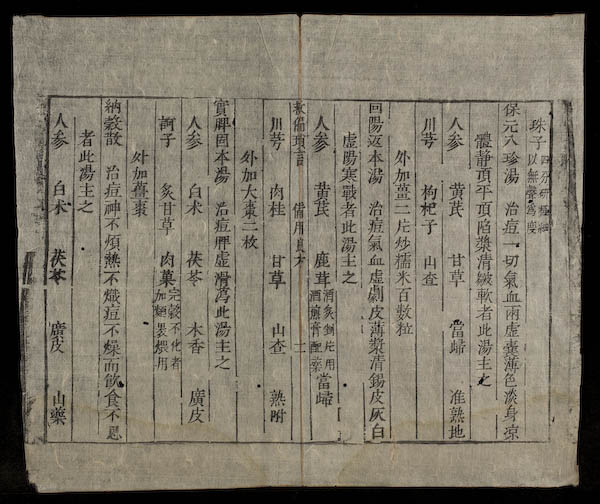 珠子 四分研極細 以無聲為要
保元八珍湯 治痘一切氣血兩虛囊薄色淡身涼
體靜頂平頂陷漿清皺軟者此湯主之
人參 黃芪 甘草 當歸 准熟地
川芎 枸杞子 山查
外加薑二片炒糯米百數粒
回陽返本湯 治痘氣血虛劇皮薄漿清錫皮灰白
虛腸寒戰者此湯主之
人參 黃芪 鹿茸 當歸
救偏瑣言 備用良方 二
川芎 肉桂 甘草 山查 熟附
外加大棗二枚
實脾固本湯 治痘脾虛滑瀉此湯主之
人參 白朮 茯苓 木香 廣皮
訶子 炙甘草 肉菓 完穀不化者 加麵裹煨用
外加薑棗
納穀散 治痘神不煩熱不熾痘不燥而飲食不思
者此湯主之
人參 白朮 茯苓 廣皮 山藥